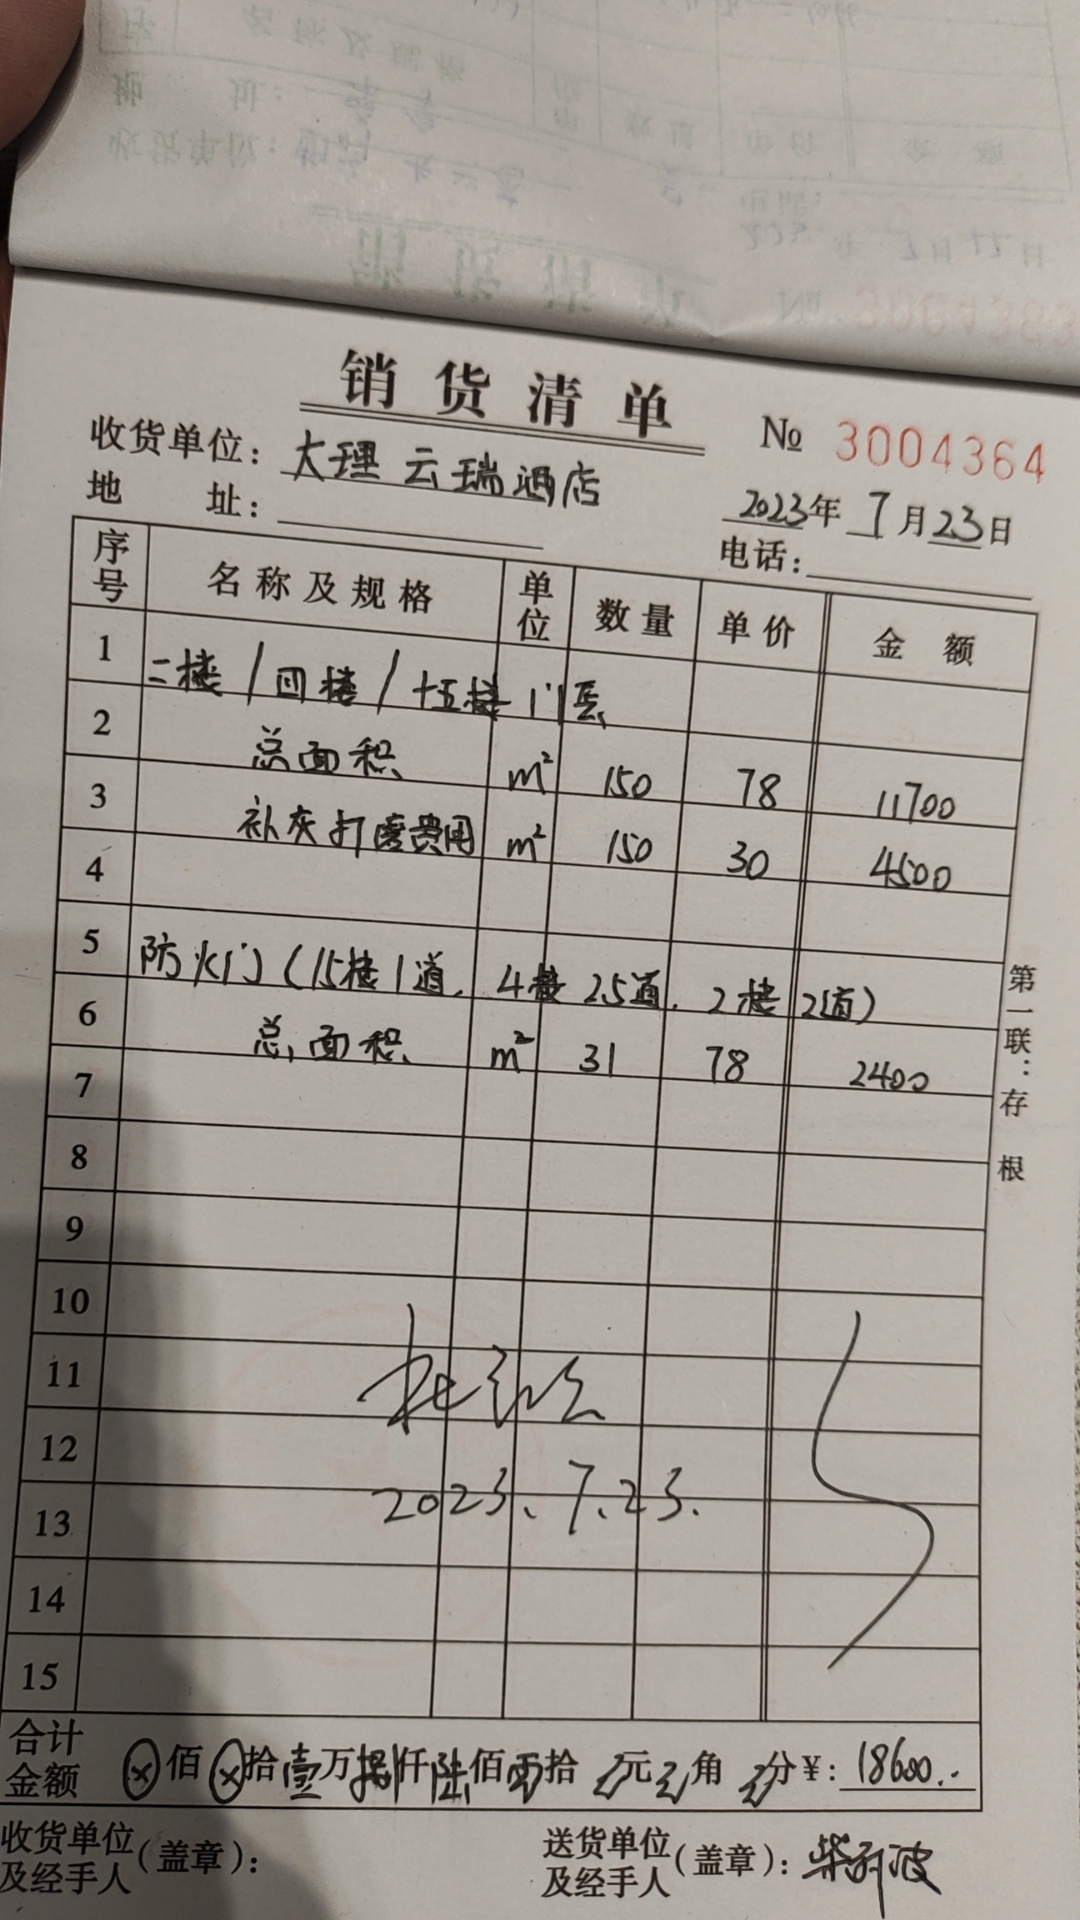 销货清单
№ 3004364
收货单位: 大理云瑞酒店
2023年 7月23日
地 址:
电话:
序号 名称及规格 单位 数量 单价 金额
1 二楼/四楼/十五楼门
2 总面积 m² 150 78 11700
3 补灰打磨费用 m² 150 30 4500
4
5 防火门(15楼1道. 4楼 25道. 2楼 2道)
6 总面积 m² 31 78 2400
7
8
9
10
11
12
2023.7.23.
13
14
15
合计金额 ⊗佰⊗拾壹万捌仟陆佰零拾 元 角 分¥: 18600..
收货单位及经手人(盖章):
送货单位及经手人(盖章):
第一联:存根